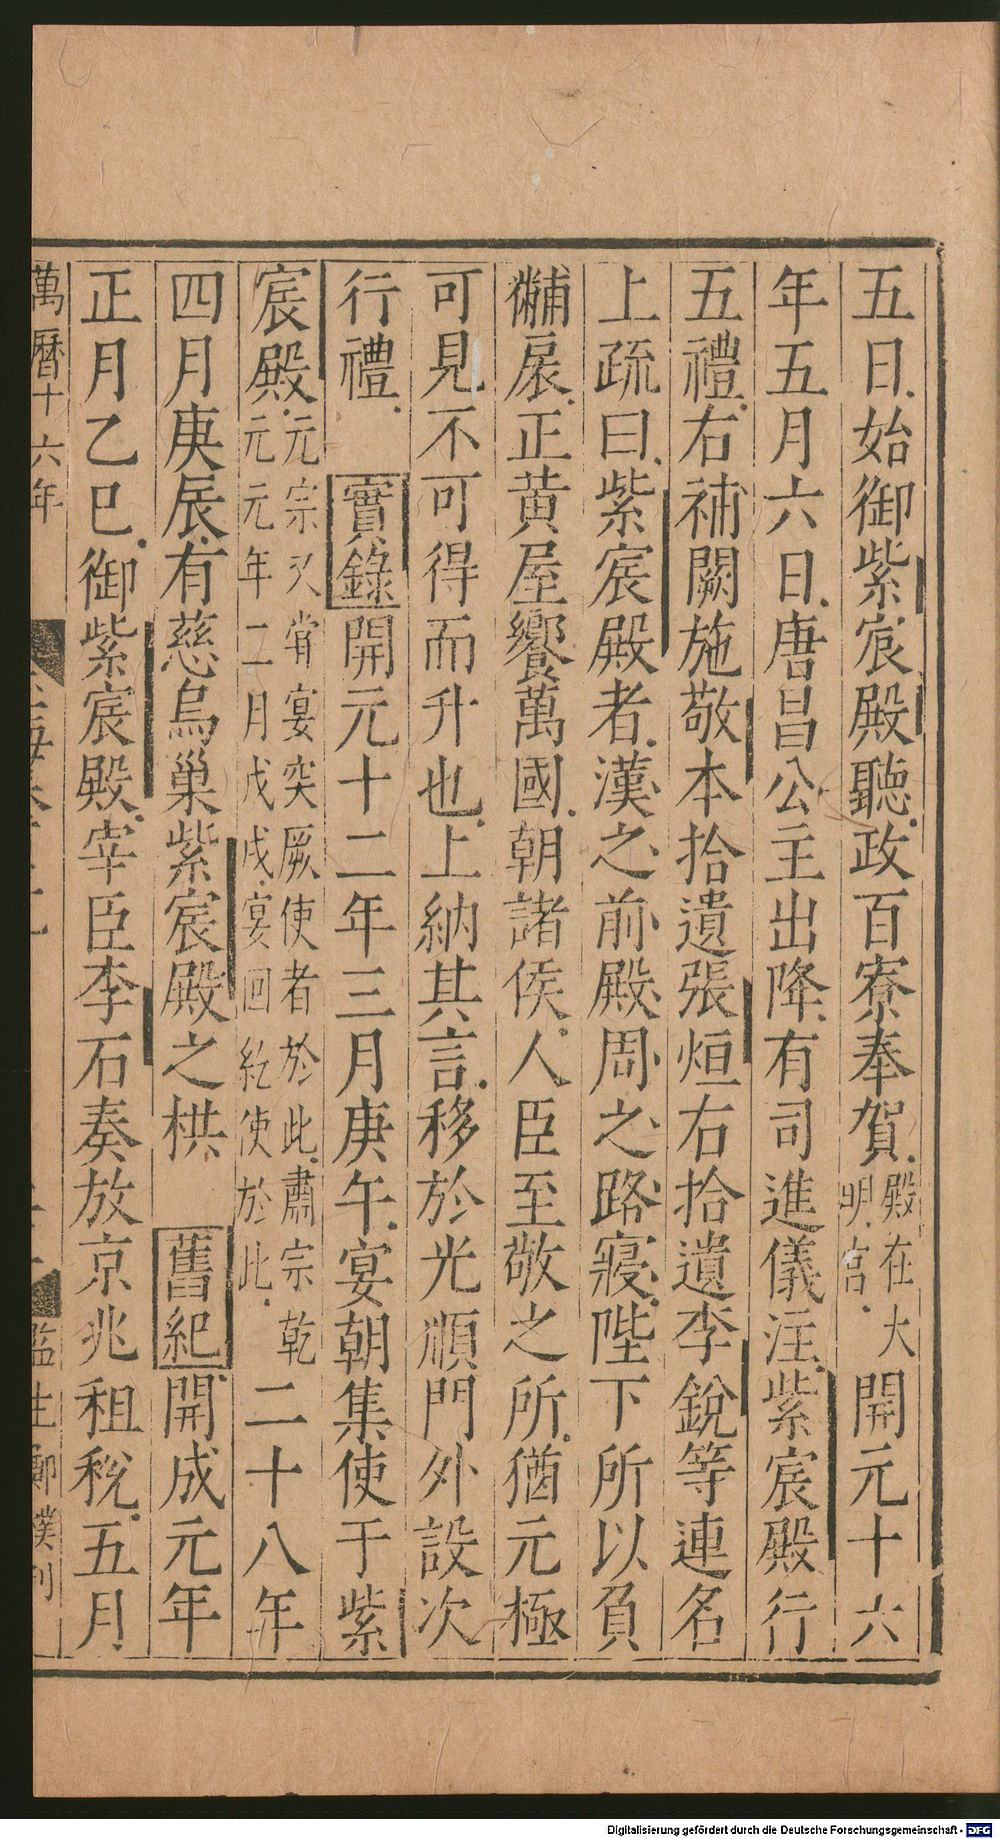 五日始御紫宸殿聽政百寮奉賀殿在大明宮開元十六
年五月六日唐昌公主出降有司進儀注紫宸殿行
五禮右補闕施敬本拾遺張烜右拾遺李銳等連名
上疏曰紫宸殿者漢之前殿周之路寢陛下所以負
黼扆正黄屋饗萬國朝諸侯人臣至敬之所猶元極
可見不可得而升也上納其言移於光順門外設次
行禮實錄開元十二年三月庚午宴朝集使于紫
宸殿元宗又甞宴突厥使者於此肅宗乾元元年二月戊戌宴回紇使於此二十八年
四月庚辰有慈烏巢紫宸殿之栱舊紀開成元年
正月乙巳御紫宸殿宰臣李石奏放京兆租稅五月
萬曆十六年
監生鄭濮刊
Digitalisierung gefördert durch die Deutsche Forschungsgemeinschaft - DFG